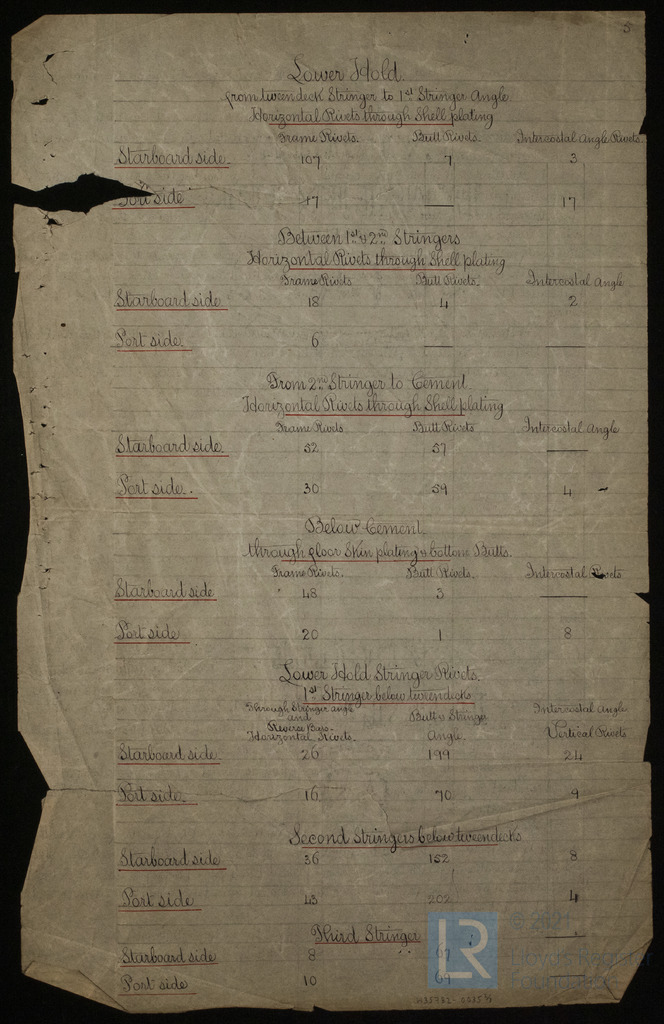 5
Lower Hold.
from tweendeck Stringer to 1st Stringer Angle.
Horizontal Rivets through Shell plating
Frame Rivets. Butt Rivets. Intercostal Angle Rivets.
Starboard side 107 7 3
Port side 17 — 17
Between 1st & 2nd Stringers
Horizontal Rivets through Shell plating
Frame Rivets Butt Rivets. Intercostal Angle
Starboard side 18 4 2
Port side. 6 — —
From 2nd Stringer to Cement.
Horizontal Rivets through Shell plating
Frame Rivets Butt Rivets Intercostal Angle
Starboard side. 52 57 —
Port side. 30 59 4
Below Cement
through floor Skin plating & bottom Butts.
Frame Rivets. Butt Rivets. Intercostal Rivets
Starboard side 48 3 —
Port side 20 1 8
Lower Hold Stringer Rivets.
1st Stringer below tweendecks
Through Stringer angle and Reverse Bars. Horizontal Rivets. Butt & Stringer Angle. Intercostal Angle Vertical Rivets
Starboard side 26 199 24
Port side. 16 70 9
Second Stringers below tweendecks
Starboard side 36 152 8
Port side 43 202 4
Third Stringer
Starboard side 8 67
Port side 10 69
LR © 2021
Lloyd's Register
Foundation